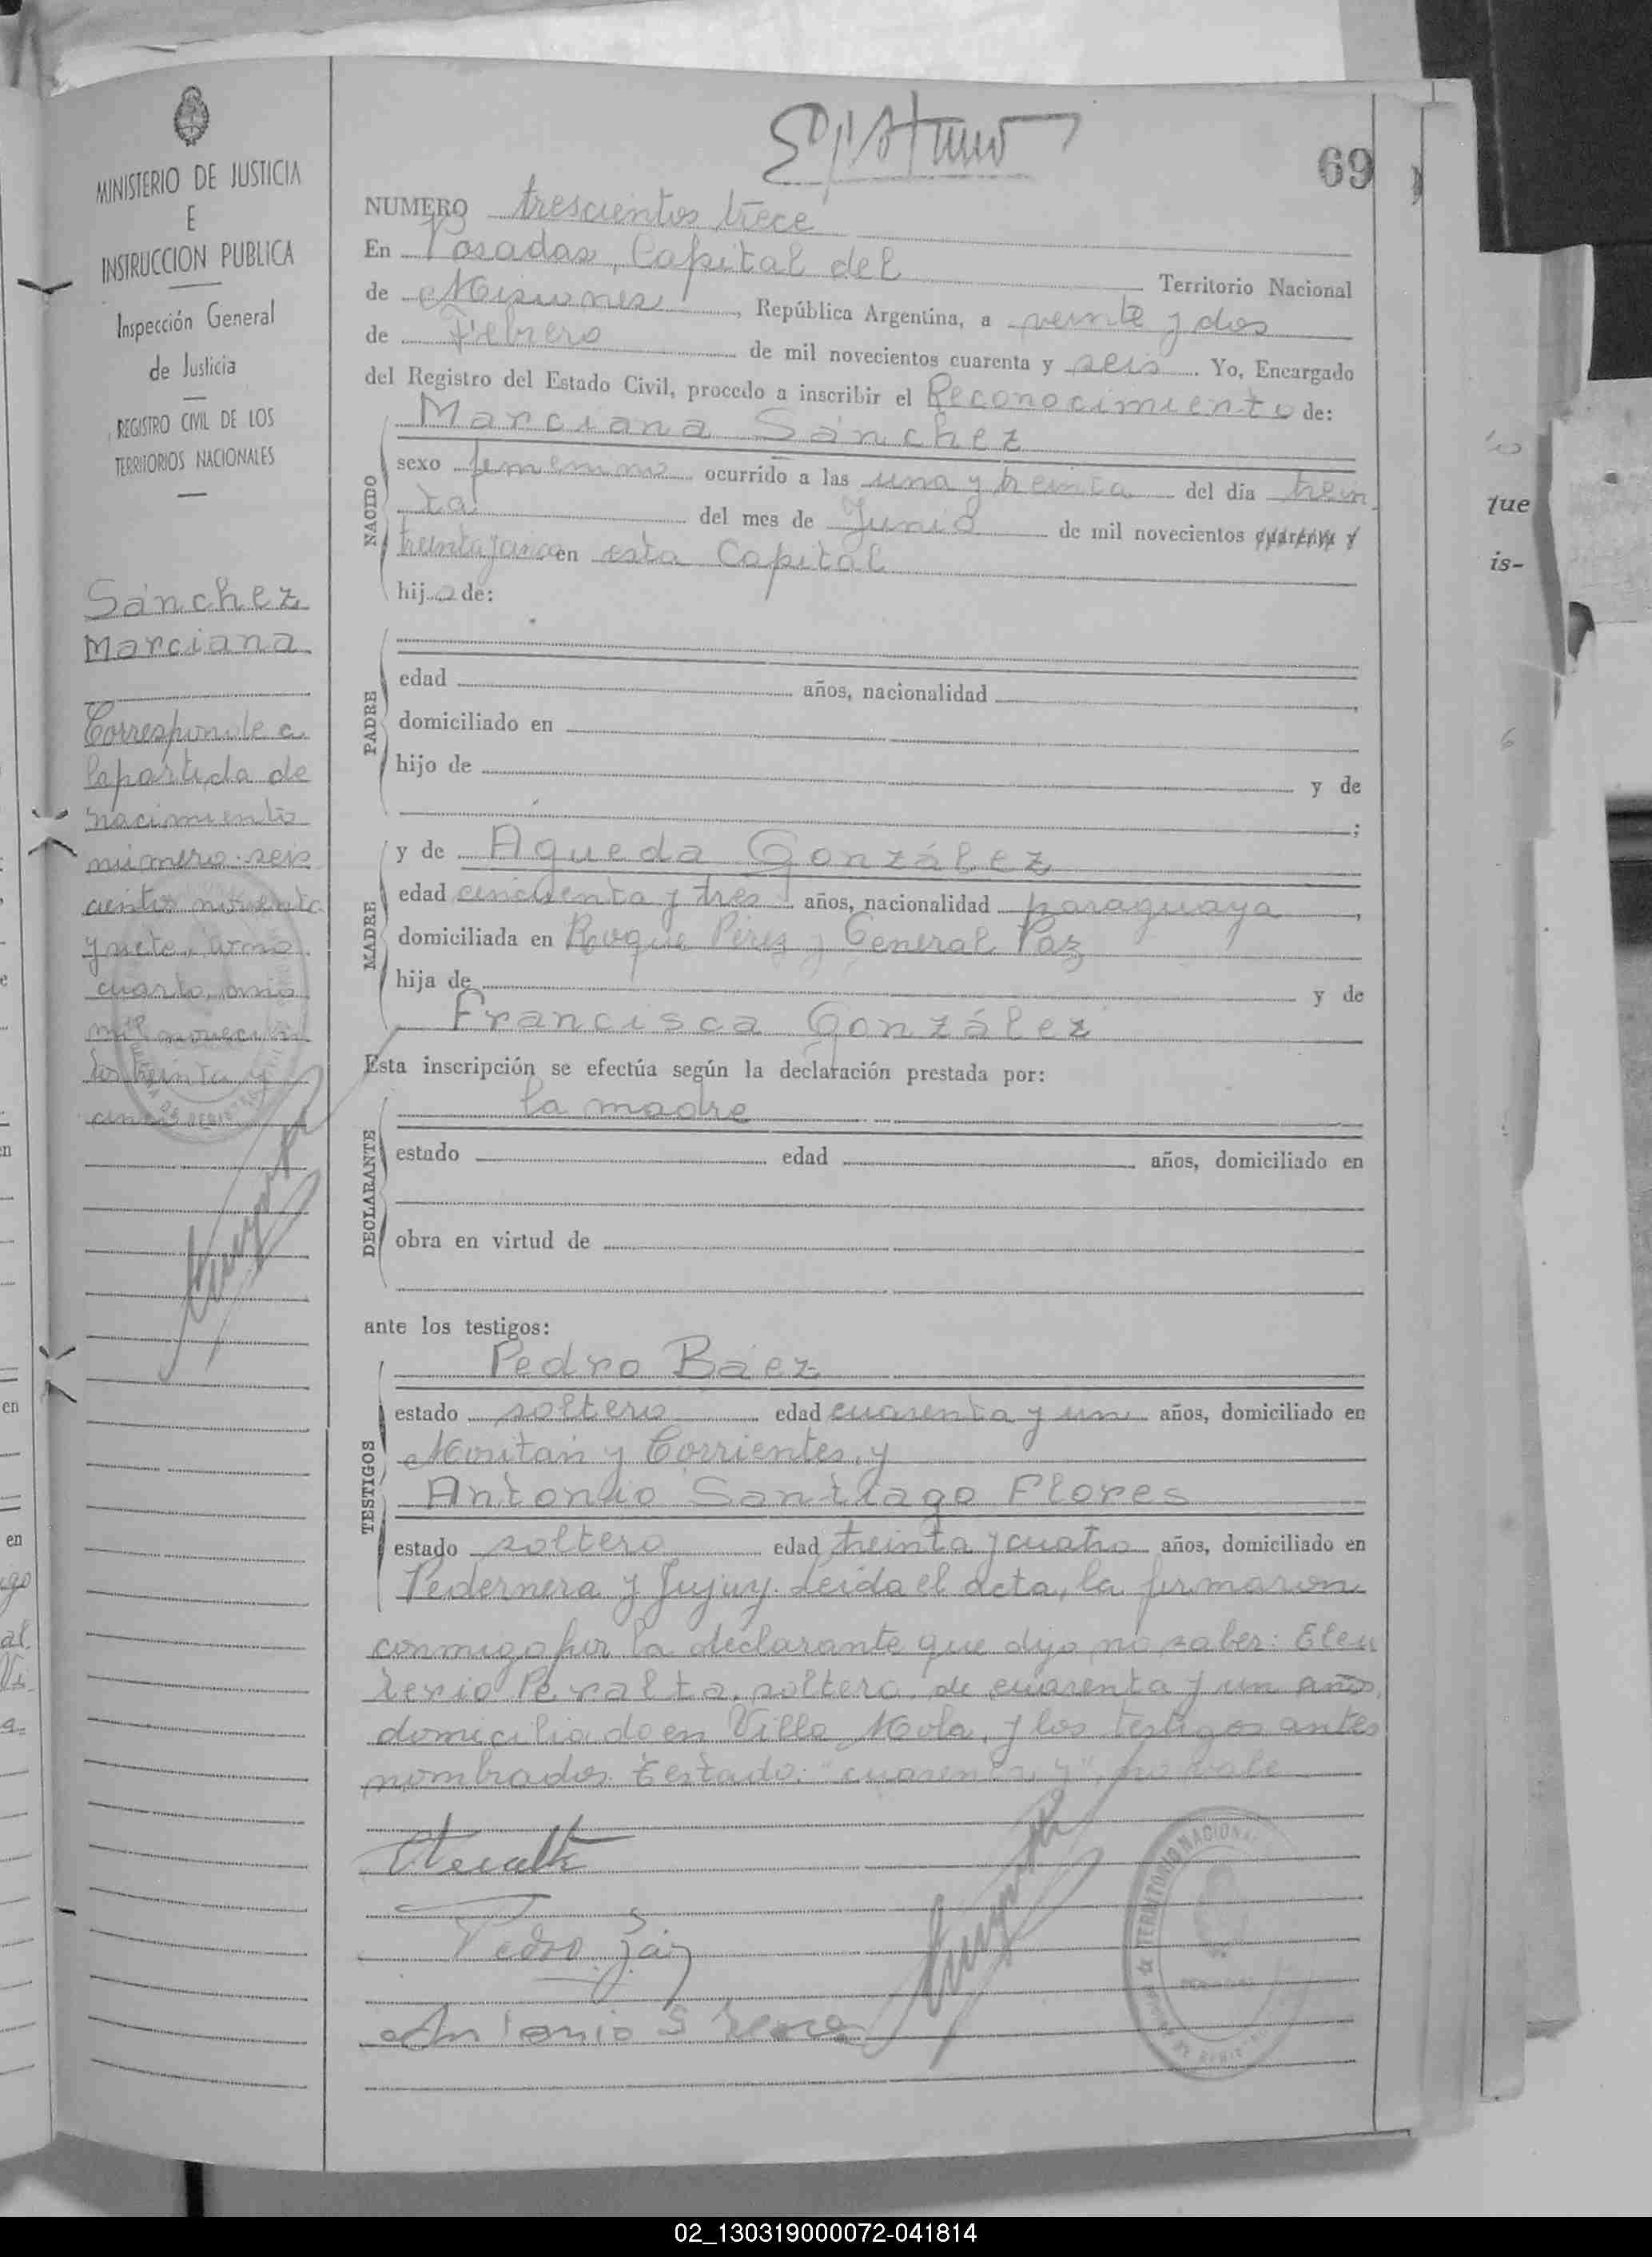 MINISTERIO DE JUSTICIA
E
INSTRUCCION PUBLICA
Inspección General
de Justicia
REGISTRO CIVIL DE LOS
TERRITORIOS NACIONALES
Sánchez
Marciana
Corresponde a
la partida de
nacimiento
número seis
cientos noventa
y siete, tomo
cuarto, año
mil novecien
tos treinta y
cinco
69
NUMERO trescientos trece
En Posadas, Capital del Territorio Nacional
de Misiones, República Argentina, a veinte y dos
de Febrero de mil novecientos cuarenta y seis. Yo, Encargado
del Registro del Estado Civil, procedo a inscribir el Reconocimiento de:
Marciana Sánchez
NACIDO
sexo femenino ocurrido a las una y treinta del día trein
ta del mes de Junio de mil novecientos cuarenta y
treinta y cinco en esta Capital
hija de:
PADRE
edad años, nacionalidad ,
domiciliado en
hijo de y de
;
MADRE
y de Agueda González
edad cincuenta y tres años, nacionalidad paraguaya,
domiciliada en Roque Pérez y General Paz
hija de y de
Francisca González
Esta inscripción se efectúa según la declaración prestada por:
DECLARANTE
la madre
estado edad años, domiciliado en
obra en virtud de
ante los testigos:
TESTIGOS
Pedro Báez
estado soltero edad cuarenta y un años, domiciliado en
y Corrientes, y
Antonio Santiago Flores
estado soltero edad treinta y cuatro años, domiciliado en
Pedernera y Jujuy. Leída el acta, la firmaron
conmigo por la declarante que dijo no saber: Eleu
terio Peralta, soltero, de cuarenta y un años,
domiciliado en Villa Mola, y los testigos antes
nombrados. Testado: "cuarenta y", no vale
Pedro Báez
Antonio S Flores
TERRITORIO NACIONAL
que
is-
6
en
en
en
go
al
Vi
a
02_130319000072-041814